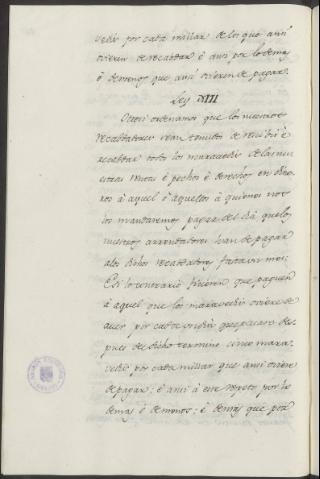 vedis por cada millar de los que ansi
ovieren de recabdar é ansi por lo demas
ó de menos que ansi ovieren de pagar.
Ley XIII
Otrosi ordenamos que los nuestros
recabdadores sean tenudos de recudir é
recabdar todos los maravedis de las nu
estras rentas é pechos é derechos en dine
ros á aquel ó aquellos á quienes nos
los mandaremos pagar del dia que los
nuestros arrendadores han de pagar
a los dichos recabdadores fasta un mes:
E si lo contrario ficieren, que paguen
á aquel que los maravedis oviere de
aver por cada un dia que pasare des
pues del dicho termino cinco mara
vedis por cada millar que ansi oviere
de pagar: é ansi á este respeto por lo
demas ó de menos: é demas que por